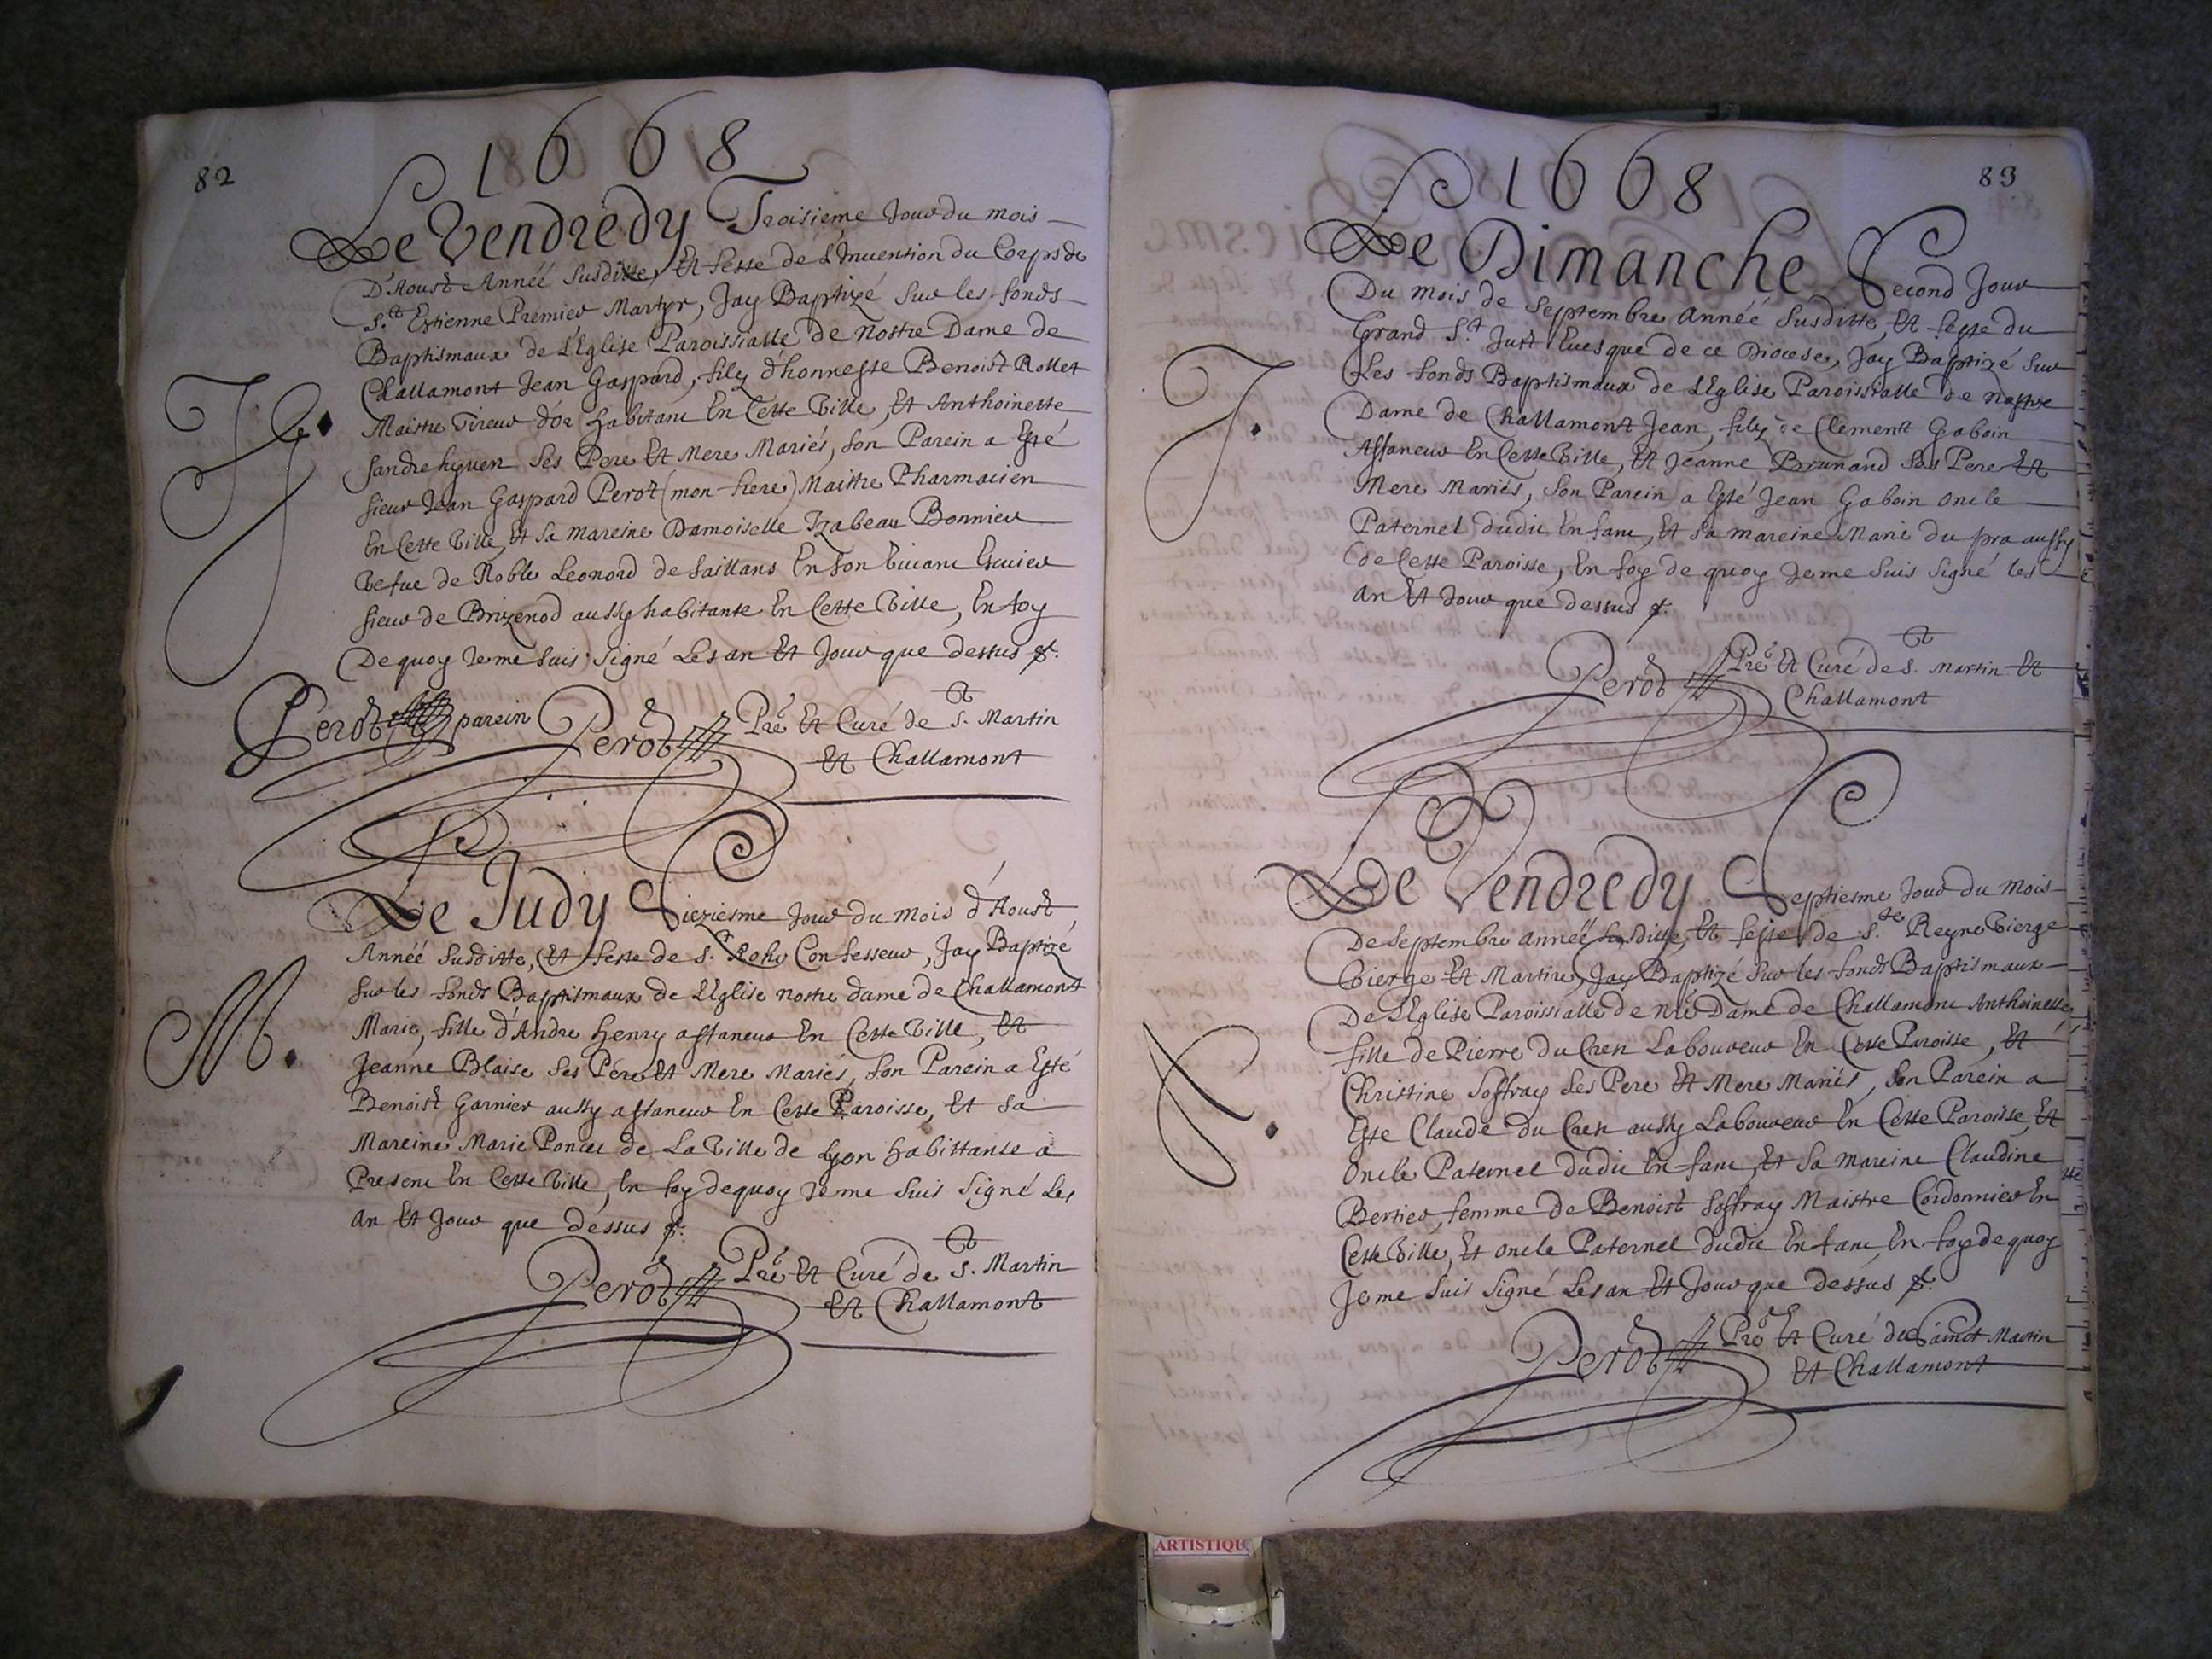 82
1668
Le Vendredy Troisieme Jour du mois
D'Aoust Année susditte, Et feste de L'Inuention du Corps de
S.t Estienne Premier Martyr, Jay Baptizé sur les fonds
Baptismaux de L'Eglise Paroissialle de Nostre Dame de
Challamont Jean Gaspard, filz d'honneste Benoist Rollet
Maistre Tireur d'or habitant En Cette Ville, Et Anthoinette
ses Pere Et Mere Mariés, son Parein a Esté
sieur Jean Gaspard Perot (mon frere) Maistre Pharmacien
En Cette Ville, Et sa mareine Damoiselle Izabeau Bonnier
Vefue de Noble Leonord de Saillans En son Viuant Escuier
sieur de Brizenod aussy habitante En Cette Ville, En foy
De quoy Je me suis signé Les an Et Jour que dessus
J G.
Perot parein Perot Pre Et Curé de S.t Martin
Et Challamont
Le Judy Sieziesme Jour du mois d'Aoust
Année susditte, Et feste de S.t Rohc Confesseur, Jay Baptizé
sur les fonds Baptismaux de L'Eglise nostre dame de Challamont
Marie, fille d'Andre Henry affaneur En Cette Ville, Et
Jeanne Blaise ses Pere Et Mere Mariés, son Parein a Esté
Benoist Garnier aussy affaneur En Cette Paroisse, Et sa
Mareine Marie Poncet de La Ville de Lyon habittante a
Present En Cette Ville, En foy de quoy Je me suis signé Les
an Et Jour que dessus
M.
Perot Pre Et Curé de S.t Martin
Et Challamont
83
1668
Le Dimanche Second Jour
Du mois de Septembre année susditte, Et feste du
Grand S.t Just Euesque de ce Diocese, Jay Baptizé sur
Les fonds Baptismaux de L'Eglise Paroissialle de nostre
Dame de Challamont Jean, filz de Clement Gaboin
Affaneur En Cette Ville, Et Jeanne Brunand ses Pere Et
Mere Mariés, son Parein a Esté Jean Gaboin oncle
Paternel dudit Enfant, Et sa mareine Marie du pra aussy
de Cette Paroisse, En foy de quoy Je me suis signé les
an Et Jour que dessus
J.
Perot Pre Et Curé de S.t Martin Et
Challamont
Le Vendredy Septiesme Jour du mois
De Septembre année susditte, Et feste de S.te Reyne Vierge
Vierge Et Martire, Jay Baptizé sur les fonds Baptismaux
De L'Eglise Paroissialle de nre Dame de Challamont Anthoinette
fille de Pierre du Cren Laboureur En Cette Paroisse, Et
Christine Soffray ses Pere Et Mere Mariés, son Parein a
Esté Claude du Cren aussy Laboureur En Cette Paroisse, Et
Oncle Paternel dudit Enfant, Et sa mareine Claudine
Bertier, femme de Benoist Soffray Maistre Cordonnier En
Cette Ville, Et oncle Paternel dudit Enfant, En foy de quoy
Je me suis signé Les an Et Jour que dessus
A.
Perot Pre Et Curé de Sainct Martin
Et Challamont
ARTISTIQU